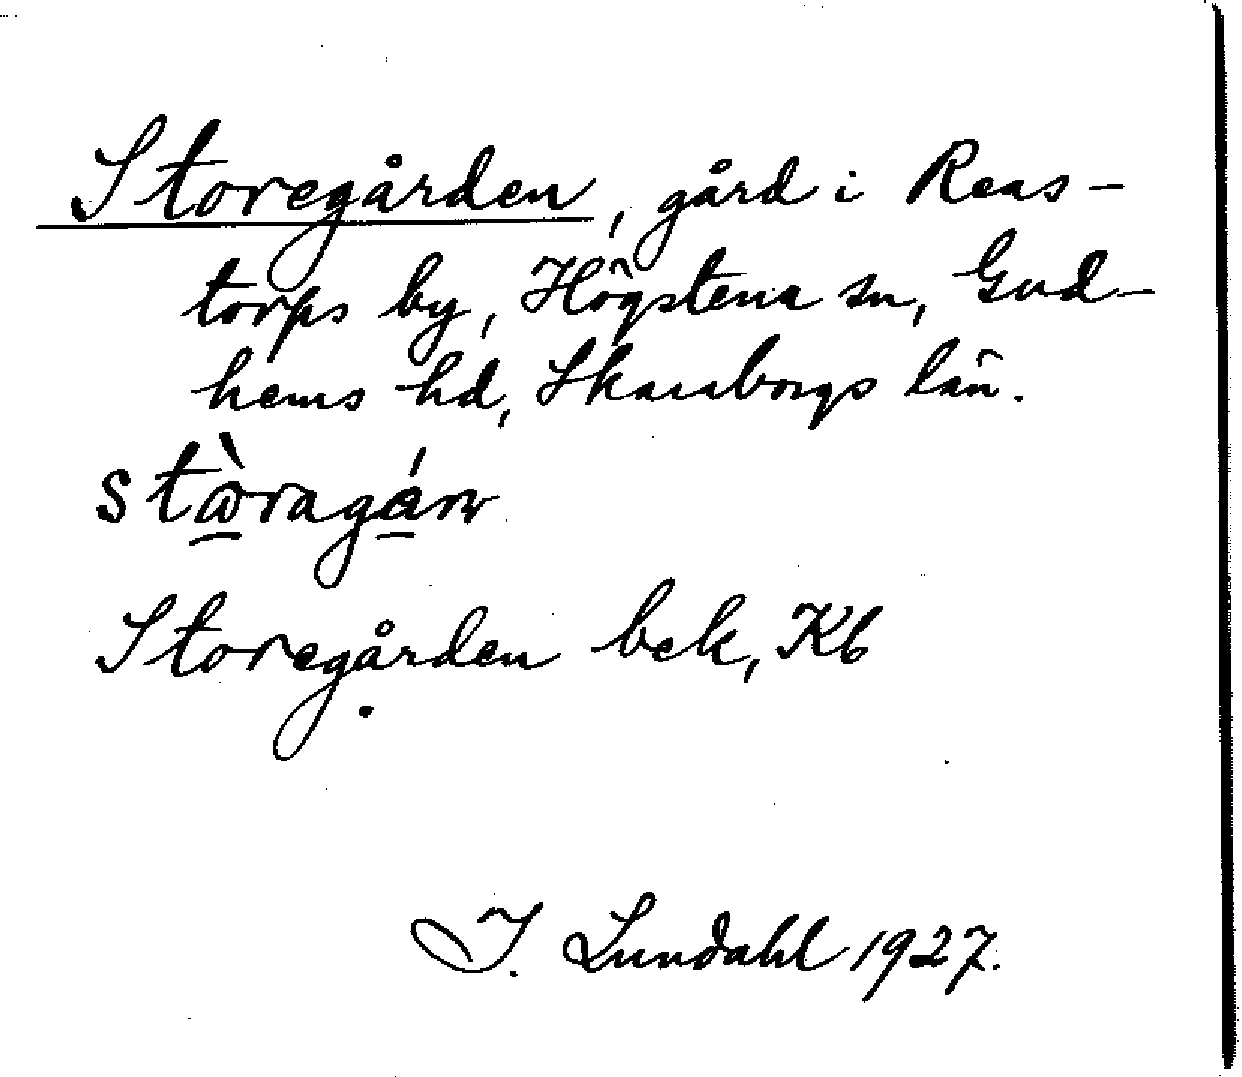 Storegården, gård i Reas-
torps by, Högstena sn, Gud-
hems hd, Skaraborgs län.
Storegården bek, Kb
I. Lundahl 1927.